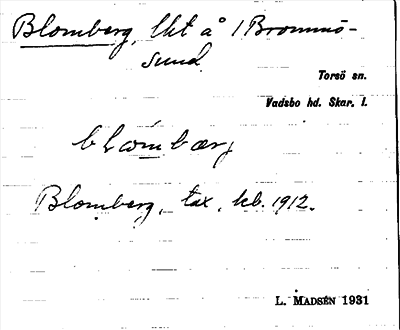 Blomberg, lht å 1 Brommö-
sund
Torsö sn.
Vadsbo hd. Skar. l.
blωmbærj
Blomberg, tax, kb. 1912.
L. MADSÉN 1931